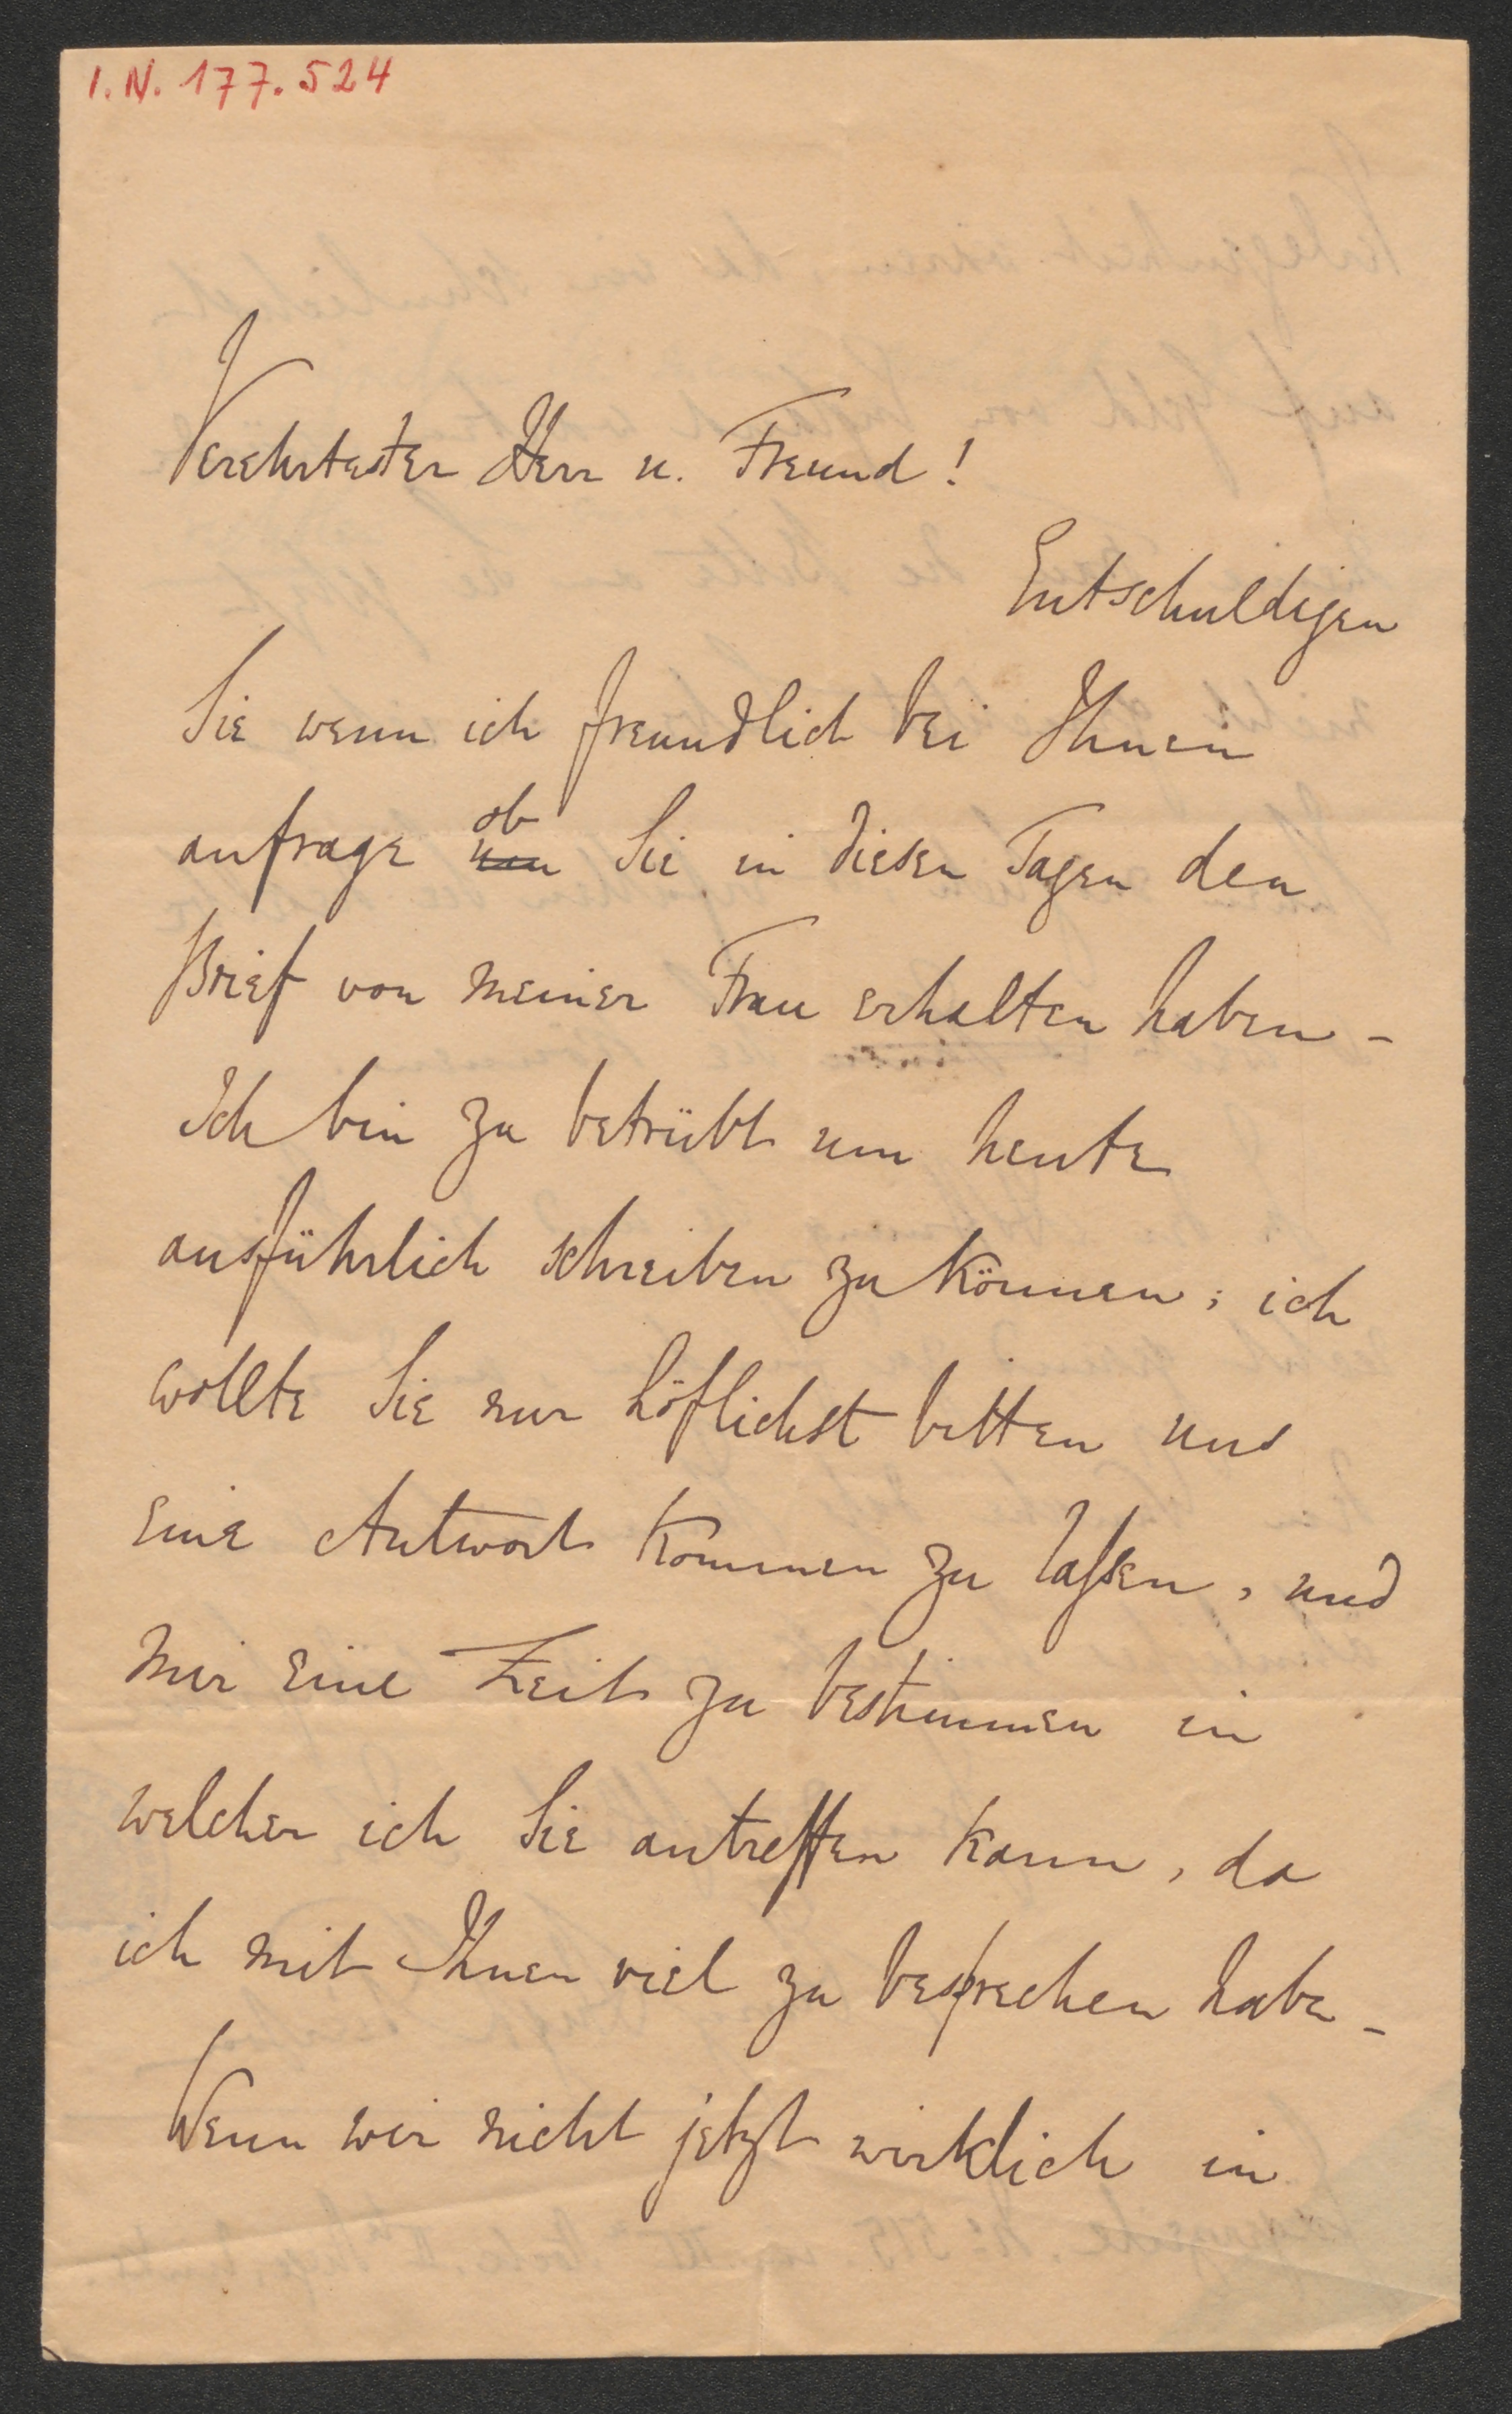 I.N. 177.524
Verehrtester Herr u. Freund!
Entschuldigen
Sie wenn ich freundlich bei Ihnen
anfrage ob Sie in diesen Tagen den
Brief von meiner Frau erhalten haben –
Ich bin zu betrübt um heute
ausführlich schreiben zu können; ich
wollte Sie nur höflichst bitten uns
eine Antwort kommen zu lassen, und
mir eine Zeit zu bestimmen in
welcher ich Sie antreffen kann, da
ich mit Ihnen viel zu besprechen habe –
Wenn wir nicht jetzt wirklich in